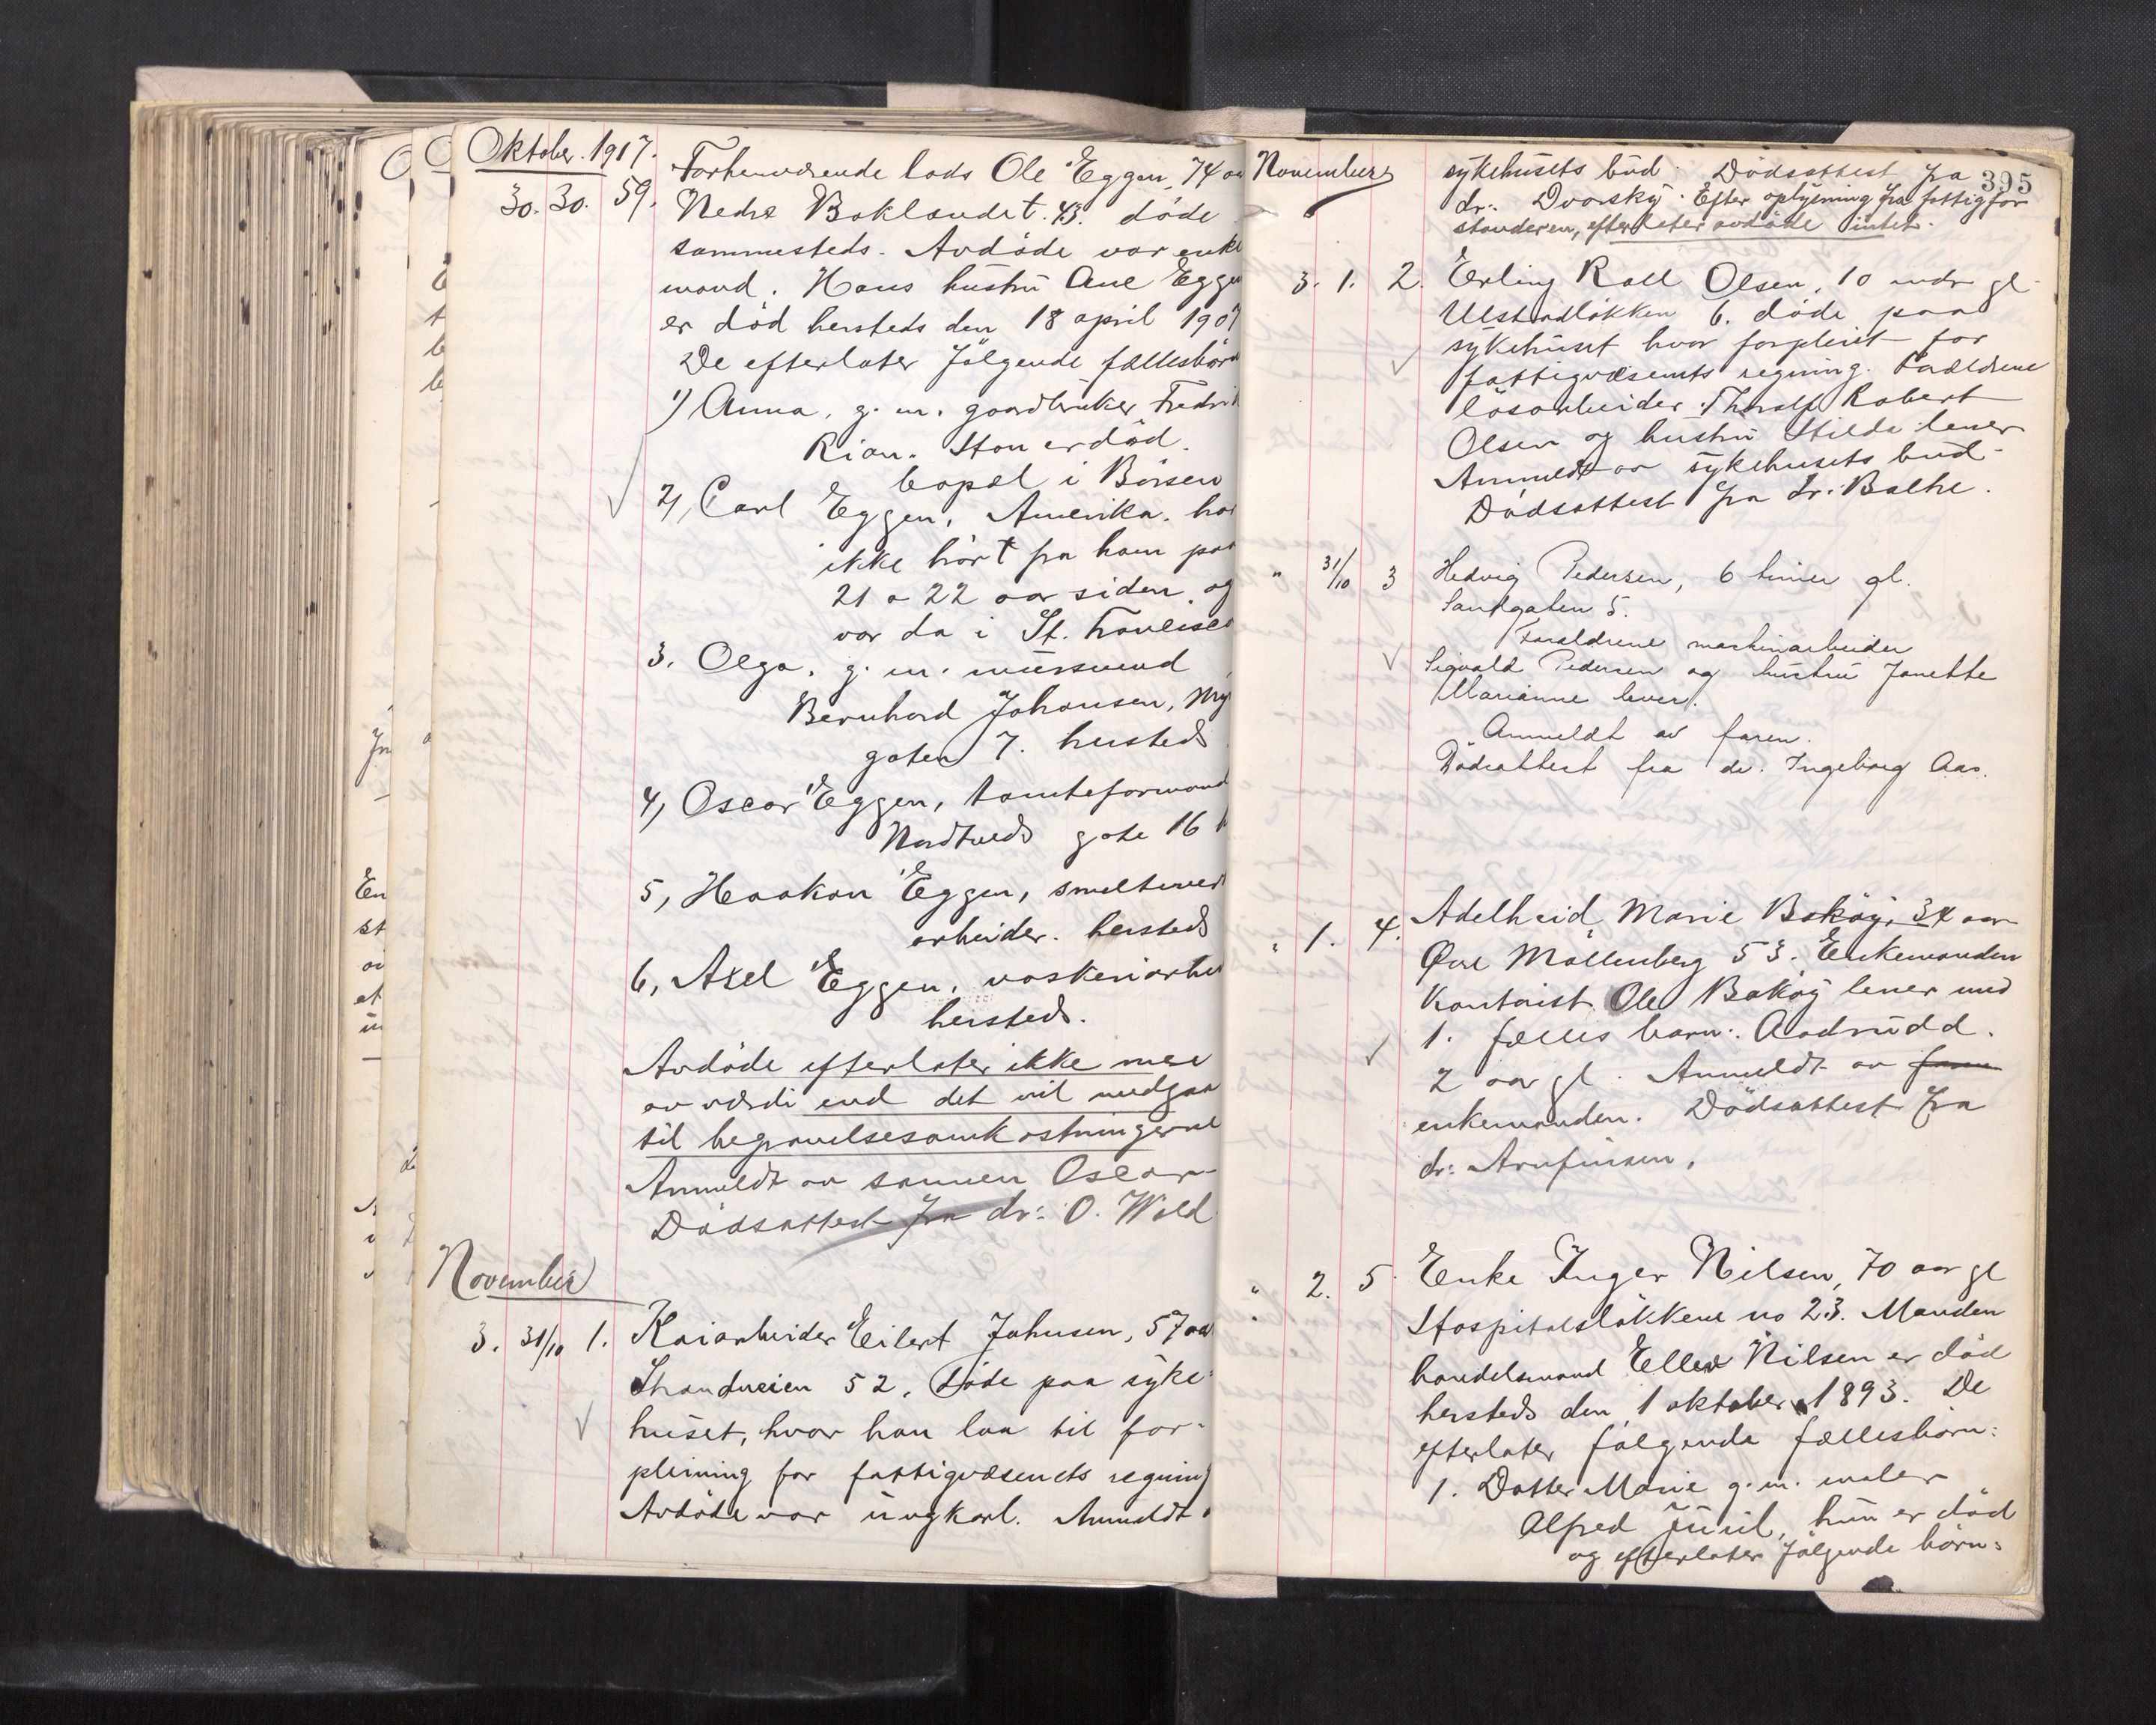 Oktober. 1917.
30. 30. 59. Forhenværende lods Ole Eggen, 74 aa
Nedre Baklandet. 43. döde
sammesteds. Avdöde var enke
mand. Hans hustru Ane Eggen
er död hersteds den 18 april 1907
De efterlater følgende fællesbörn
1) Anna, g. m. gaardbruker Fredrik
Rian. Hon er död.
bopæl i Börsen
2, Carl Eggen, Amerika. har
ikke hört fra ham paa
21 a 22 aar siden, og
var da i St. Francisco
3. Olga, g. m. mursvend
Bernhard Johansen, Ny
gaten 7. hersteds
4, Oscar Eggen, tomteformand
Nordtveds gate 16 h
5, Haakon Eggen, smelteverk
arbeider. hersteds
6, Axel Eggen, vaskeriarbei
hersteds.
Avdöde efterlater ikke mer
av værdi end det vil medgaa
til begravelsesomkostningerne
Anmeldt av sønnen Oscar
Dödsattest fra dr: O. Wold
November
3. 31/10 1. Kaiarbeider Eilert Johnsen, 57 aar
Strandveien 52, döde paa syke-
huset, hvor han laa til for-
pleining for fattigvæsenets regning
Avdöde var ungkarl. Anmeldt a
November
395
sykehusets bud. Dödsattest fra
dr: Dvorsky. Efter oplysning fra fattigfor
standeren, efterlater avdöde intet.
3. 1. 2. Erling Roll Olsen, 10 mdr gl.
Ulstadløkken 6. döde paa
sykehuset hvor forpleiet for
fattigvæsenets regning. Forældrene
lösarbeider Thoralf Robert
Olsen og hustru Hilda lever
Anmeldt av sykehusets bud.
Dödsattest fra dr: Bathe.
" 31/10 3 Hedvig Pedersen, 6 timer gl.
Sandgaten 5.
Forældrene maskinarbeider
Sigvald Pedersen og hustru Janette
Marianne lever.
Anmeldt av faren.
Dödsattest fra dr. Ingeborg Aas.
" 1. 4. Adelheid Marie Baköy, 34 aar
Øvre Möllenberg 53. Enkemanden
Kontorist Ole Baköy lever med
1. fælles barn: Aadrudd.
2 aar gl. Anmeldt av faren
enkemanden. Dödsattest fra
dr: Arnfinsen,
" 2. 5. Enke Inger Nilsen, 70 aar gl
Hospitalsløkkene no 23. Manden
handelsmand Ellev Nilsen er död
hersteds den 1 oktober 1893. De
efterlater følgende fællesbörn:
1. Datter Marie g. m. maler
Alfred Juul, hun er död
og efterlater følgende börn: